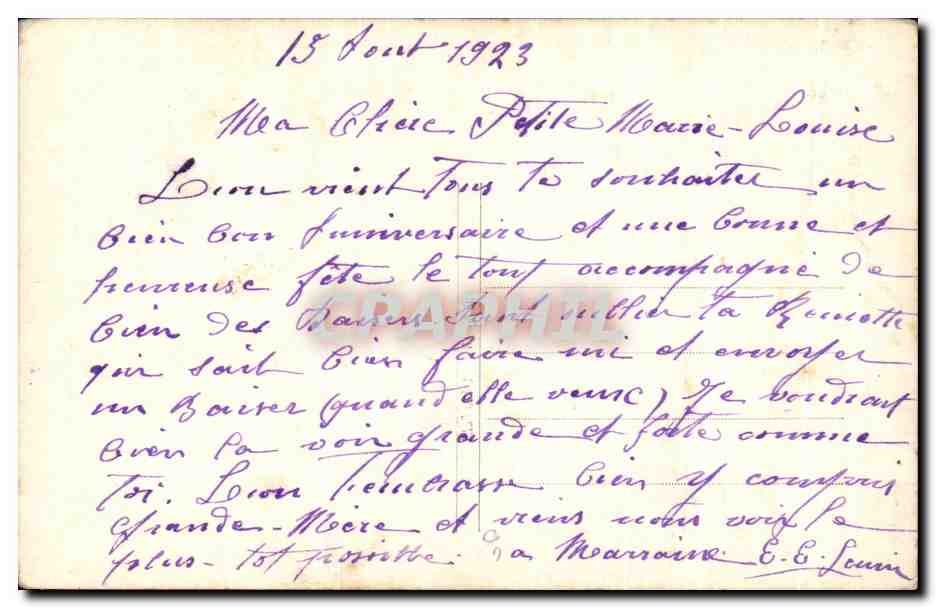 15 Aout 1923
Ma Chère Petite Marie-Louise
Lion vient tous te souhaiter un
bien bon Anniversaire et une bonne et
heureuse fête le tout accompagné de
bien des Baisers dont la
qui sait bien faire mi et envoyer
un Baiser (quand elle veux) Je voudrait
bien la voir grande et forte comme
toi. Lion t'embrasse bien y compris
Grande-Mère et viens nous voir le
plus-tot possible. Ta Marraine E. E. Louin
CPAPHIL